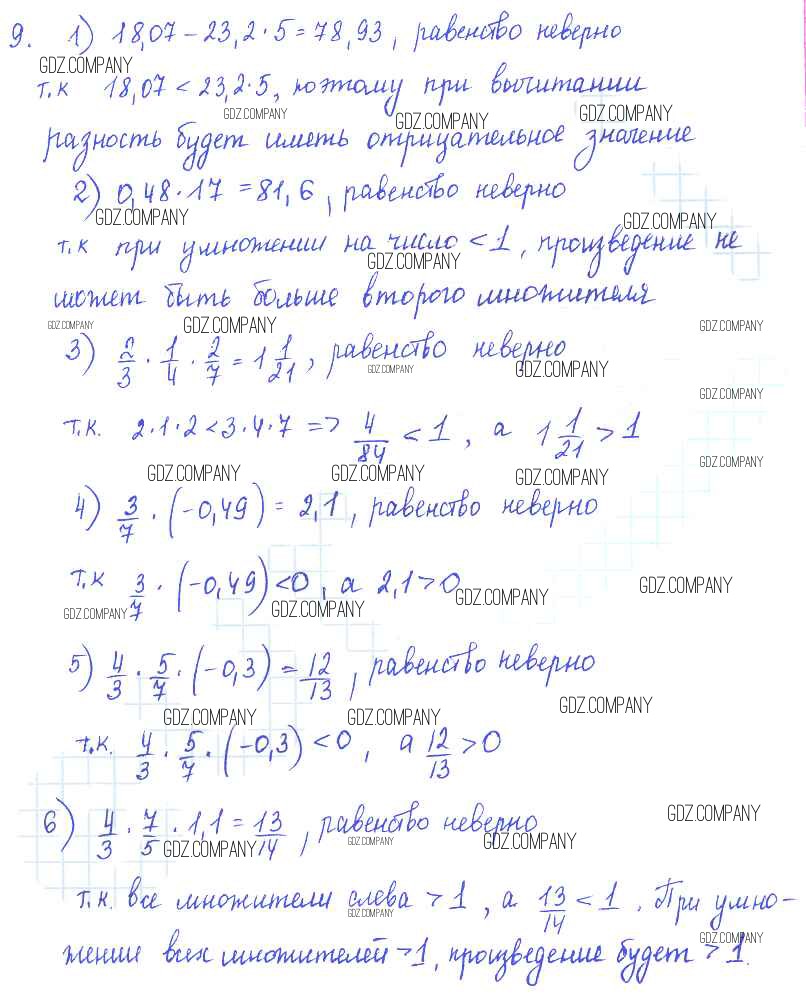 9. 1) 18,07 − 23,2 · 5 = 78,93, равенство неверно
GDZ.COMPANY
т.к 18,07 < 23,2 · 5, поэтому при вычитании
GDZ.COMPANY GDZ.COMPANY GDZ.COMPANY
разность будет иметь отрицательное значение
2) 0,48 · 17 = 81,6, равенство неверно
GDZ.COMPANY GDZ.COMPANY
т.к при умножении на число < 1, произведение не
GDZ.COMPANY
может быть больше второго множителя
GDZ.COMPANY GDZ.COMPANY GDZ.COMPANY
3) 2/3 · 1/4 · 2/7 = 1 1/21, равенство неверно
GDZ.COMPANY GDZ.COMPANY
GDZ.COMPANY
т.к. 2·1·2 < 3·4·7 => 4/84 < 1, а 1 1/21 > 1
GDZ.COMPANY
GDZ.COMPANY GDZ.COMPANY GDZ.COMPANY
4) 3/7 · (−0,49) = 2,1, равенство неверно
т.к 3/7 · (−0,49) < 0, а 2,1 > 0
GDZ.COMPANY GDZ.COMPANY GDZ.COMPANY GDZ.COMPANY
5) 4/3 · 5/7 · (−0,3) = 12/13, равенство неверно
GDZ.COMPANY GDZ.COMPANY GDZ.COMPANY
т.к. 4/3 · 5/7 · (−0,3) < 0, а 12/13 > 0
GDZ.COMPANY
6) 4/3 · 7/5 · 1,1 = 13/14, равенство неверно
GDZ.COMPANY GDZ.COMPANY GDZ.COMPANY
т.к. все множители слева > 1, а 13/14 < 1. При умно-
GDZ.COMPANY
GDZ.COMPANY
жении всех множителей > 1, произведение будет > 1.